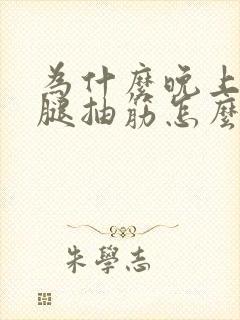 為什麼晚上
腿抽筋怎麼
朱學志